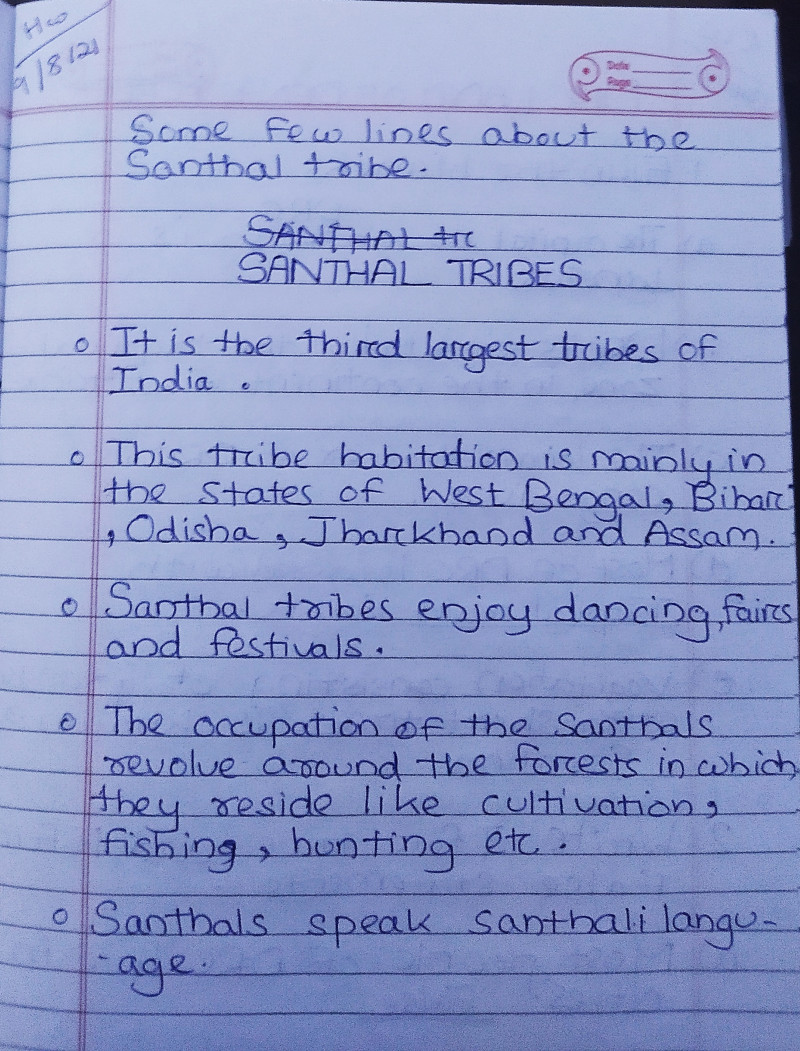 HW
9/8/21
Date
Page
Some few lines about the
Santhal tribe.
SANTHAL tr
SANTHAL TRIBES
o It is the third largest tribes of
India .
o This tribe habitation is mainly in
the states of West Bengal, Bihar
, Odisha , Jharkhand and Assam.
o Santhal tribes enjoy dancing, fairs
and festivals.
o The occupation of the Santhals
revolve around the forests in which
they reside like cultivation,
fishing , hunting etc .
o Santhals speak santhali langu-
-age.